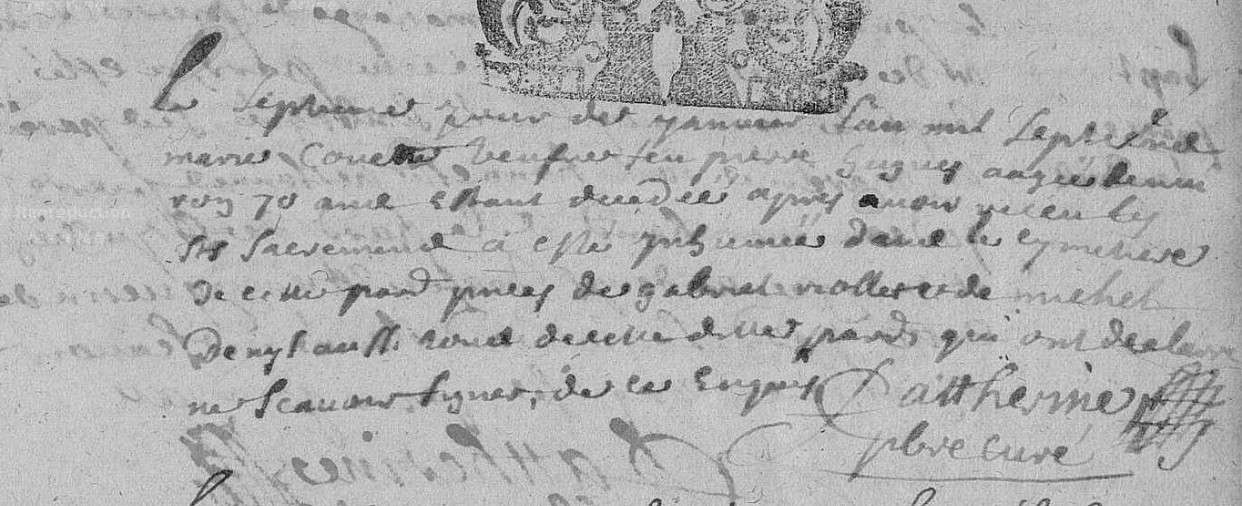 Le septieme jour de janvier l'an mil sept cens
marie Couette veufve feu pierre hugues aagée denvi
ron 70 ans estant decedée apres avoir receu les
sts sacremens a esté inhumée dans le cymetiere
de cette par presces de gabriel viollet et de michel
Denys aussi tous de cette ditte par qui ont declarer
ne scavoir signer, de ce enquis Catherine
pbre curé